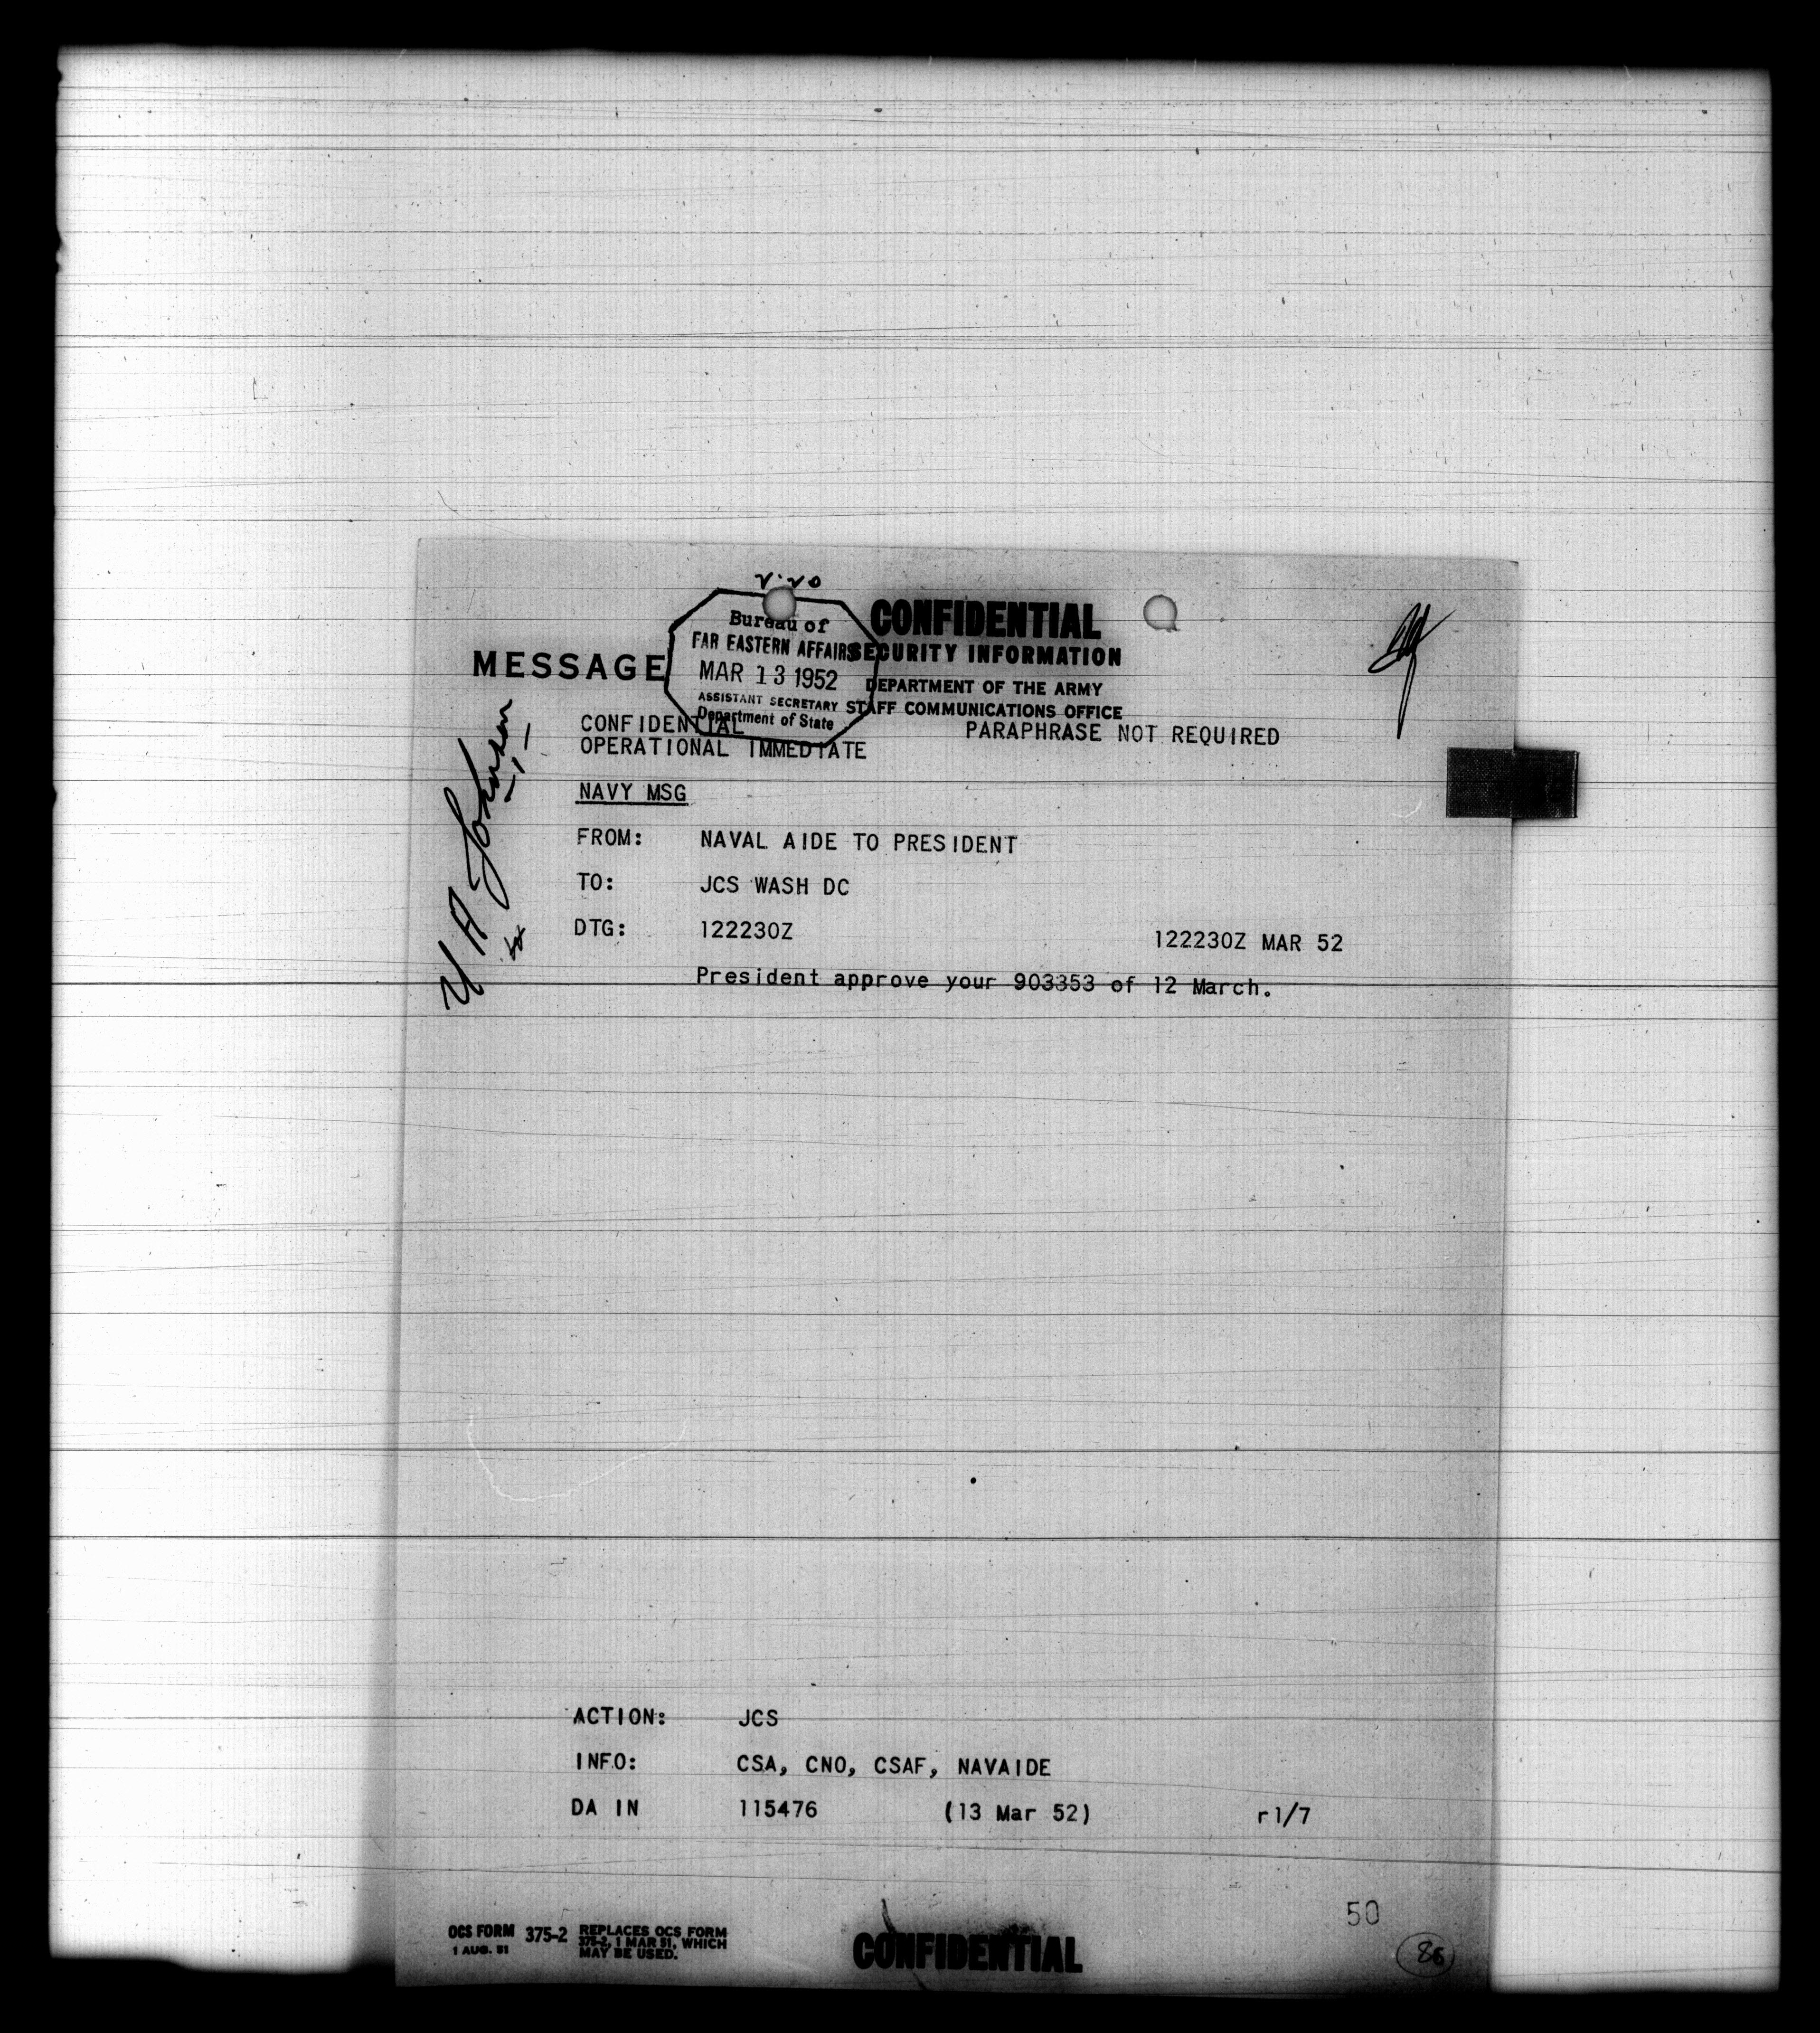 Bureau of
FAR EASTERN AFFAIRS
MAR 13 1952
ASSISTANT SECRETARY
Department of State
CONFIDENTIAL
SECURITY INFORMATION
MESSAGE
DEPARTMENT OF THE ARMY
STAFF COMMUNICATIONS OFFICE
CONFIDENTIAL
PARAPHRASE NOT REQUIRED
OPERATIONAL IMMEDIATE
U A Johnson
NAVY MSG
FROM: NAVAL AIDE TO PRESIDENT
TO: JCS WASH DC
DTG: 122230Z 122230Z MAR 52
President approve your 903353 of 12 March.
ACTION: JCS
INFO: CSA, CNO, CSAF, NAVAIDE
DA IN 115476 (13 Mar 52) r1/7
50
86
OCS FORM 375-2 REPLACES OCS FORM
1 AUG. 51 375-2, 1 MAR 51, WHICH
MAY BE USED.
CONFIDENTIAL